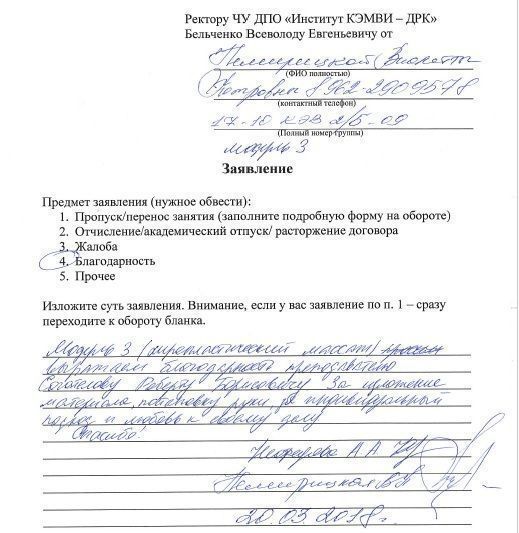 Ректору ЧУ ДПО «Институт КЭМВИ – ДРК»
Бельченко Всеволоду Евгеньевичу от
Немирицкой Виолетты
(ФИО полностью)
Петровны 8 962-2909578
(контактный телефон)
17-10 КЭВ 2/5-09
(Полный номер группы)
модуль 3
Заявление
Предмет заявления (нужное обвести):
1. Пропуск/перенос занятия (заполните подробную форму на обороте)
2. Отчисление/академический отпуск/ расторжение договора
3. Жалоба
4. Благодарность
5. Прочее
Изложите суть заявления. Внимание, если у вас заявление по п. 1 – сразу
переходите к обороту бланка.
Модуль 3 (массаж)
выражаем благодарность преподавателю
Роберту Борисовичу за изложение
материала, постановку руки, индивидуальный
подход и любовь к своему делу
Спасибо!
А.А.
Немирицкая В.П.
20.03.2018г.